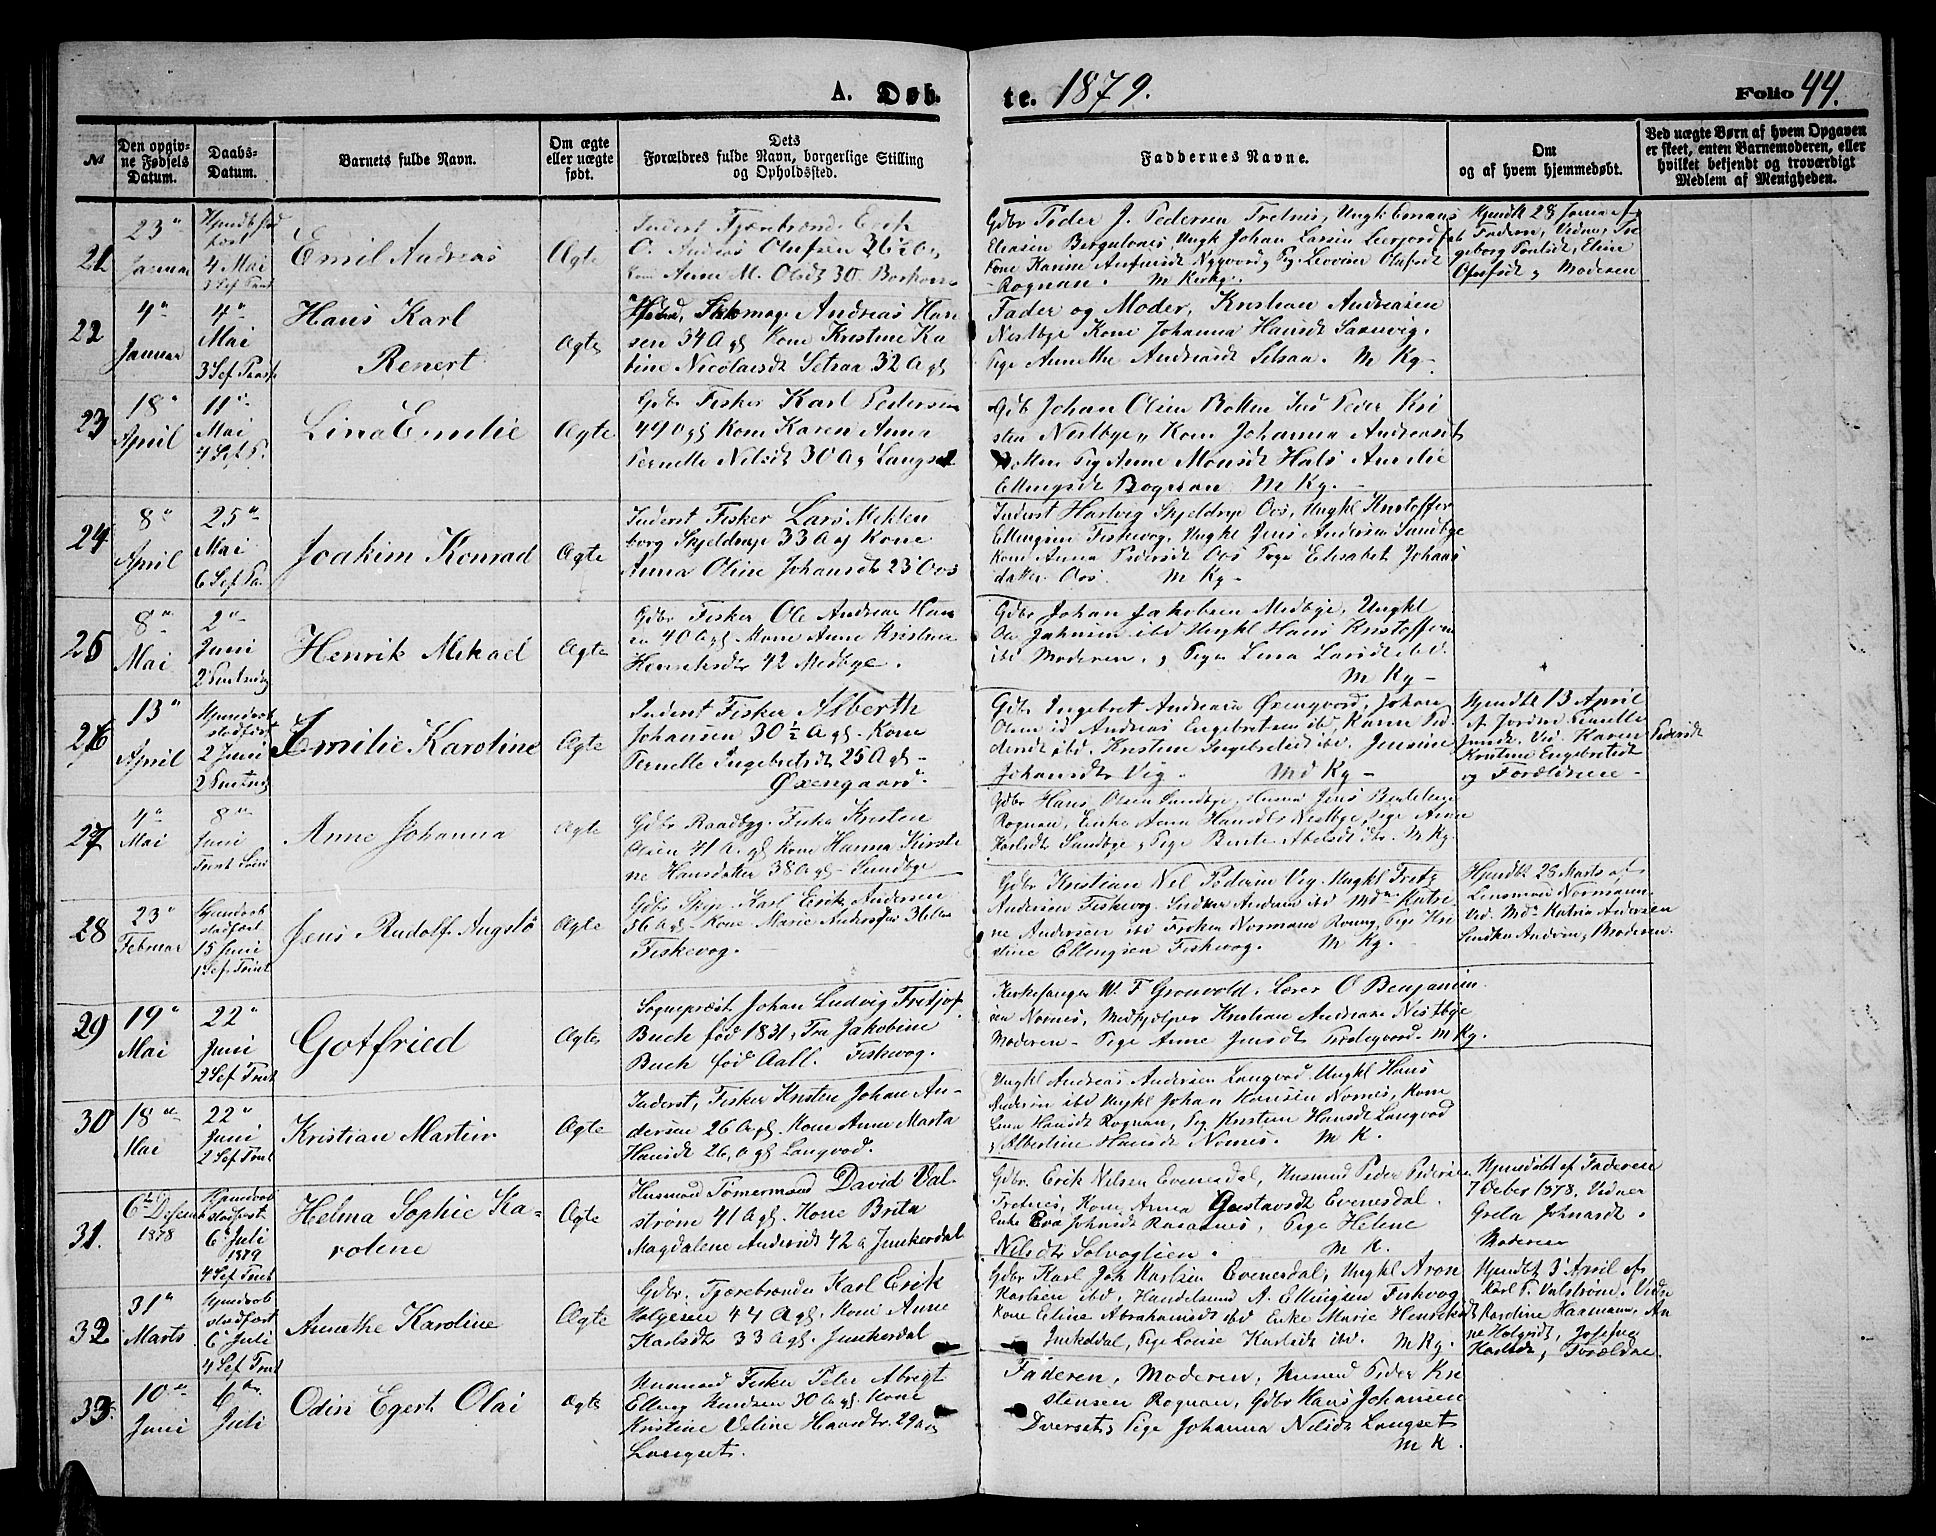 A. Døb.
te. 1879.
Folio 44.
№
Den opgiv-
ne Fødsels
Datum.
Daabs-
Datum.
Barnets fulde Navn.
Om ægte
eller uægte
født.
Dets
Forældres fulde Navn, borgerlige Stilling
og Opholdssted.
Faddernes Navne.
Om
og af hvem hjemmedøbt.
Ved uægte Børn af hvem Opgaven
er skeet, enten Barnemoderen, eller
hvilket bekjendt og troværdigt
Medlem af Menigheden.
21
23
Januar
4 Mai
Emil Andreas
Ægte
Inderst Tjærebrænder Erik
O. Andreas Olufsen 36½ Ag
Kone Anne M. Olsdt 30.
Gdbr Peder J. Pedersen Tretnes, Ungk Ermans
Eliasen Bergulnes, Ungk Johan Larsen Leerjord
Kone Karine
Rognan. M Kirkg.
Hjmdt 28 Januar af
Faderen, Vidner, In
geborg
Olufsdt og Moderen
22
4
Januar
4
Mai
3 Sef Paask
Hans Karl
Renert
Ægte
Andreas Han
sen 34 Agf Kone Kristine Ka
trine Nicolaisdt Setsaa 32 Agf
Fader og Moder, Kristian Andreasen
Nestbye Kone Johanna Hansdt Saxenvig.
Pige Annethe Andreasdt Setsaa. M Kg-
23
18
April
11
Mai
4 Sef P.
Lina Emilie
Ægte
Gdbr Fisker Karl Pedersen
49 Agf Kone Karen Anna
Pernelle Nilsdt 30 Ag Langset
Gdb Johan Olsen Botten Ins Peder Kri
sten Nestbye, Kone Johanna Andreasdt
Botten Pig Anne Monsdt Hals Amelie
Ellingsdt Rognan M Kg.
24
8
April
25
Mai
6 Sef Pa
Joakim Konrad
Ægte
Inderst Fisker Lars Mehlen
borg Skjeldrup 33 Ag Kone
Anna Oline Johansdt 23 Oos
Inderst Hartvig Skjeldrup Oos, Ungkl Kristoffer
Ellingsen Fiskevog, Ungkl Jens Andersen Sundbye
Kone Anna Pedersdt Oos Pige Elisabet Johans
datter Oos. M Kg-
25
8
Mai
2
Juni
2 Pintsedag
Henrik Mikael
Ægte
Gdbr Fisker Ole Andreas Han
sen 40 Agf. Kone Anne Kristina
Henriksdtr 42 Medbye.
Gdbr Johan Jakobsen Medbye, Ungkl
Ole Jahnsen ibd Ungkl Hans Kristoffersen
ibd Moderen, og Pige Lena Larsdt ibd.
M Kg-
26
13
April
Hjemdøb
stadfæst
2 Juni
2 Pintsedag
Emilie Karoline
Ægte
Inderst Fisker Alberth
Johansen 30½ Agf. Kone
Pernelle Ingebretsdt 25 Agf-
Øxengaard.
Gdbr Ingebret Andersen Øxengaard, Johan
Olsen ib Andreas Engebretsen ibd, Karen Pe
dersdt ibd. Kristine Ingebretsdt ibd. Jensine
Johansdtr Vig. Md Kg-
Hjmdt 13 April
Af Jordm Pernelle
Jensdt. Vid. Karen Pedersdt
Kristine Engebretsdt
og Forældrene-
27
4
Mai
8
Juni
Anne Johanna
Ægte
Gdbr Raadbyg. Fisker Kristen
Olsen 41 Agf Kone Hanna Kirsti
ne Hansdatter 38 Agf- Sundbye
Gdbr Hans Olsen Sundbye, Husmd Jens
Rognan, Enke Anna Hansdtr Nestbye, Pige Anne
Karlsdt Sundbye, Pige Bente Abelsdt ibd. M Kg.
28
23
Februar
Hjemdøb
stadfæst
15 Juni
1 Sef Trint
Jens Rudolf Angslø
Ægte
Gdbr Skip. Karl Erik Andersen
36 Agf. Kone Marie Andersen
Fiskevog.
Gdbr Kristian Nel Pedersen Vig Ungkl Fritz
Andersen Fiskevog. Snedker Andersen ibd Md Katri
ne Andersen ibd Frøken Normann Pige Kri
stine Ellingsen Fiskevog. M Kg.
Hjmdt 25 Marts af
Lensmand Normann.
Vid. Md Katrin Andersen
Snedker Andersen, Moderen.
29
19
Mai
22
Juni
2 Sef Trint
Gotfried
Ægte
Sogneprest Johan Ludvig Fritjof
Buch fød 1831, Fru Jakobine
Buch fød Aall. Fiskvog.
Kirkesanger W. F Gronvold, Lærer O Benjamin
sen Nornes, Medhjælper Kristian Andersen Nestbye
Moderen- Pige Anne Jensdt M Kg.
30
18
Mai
22
Juni
2 Sef Trint
Kristian Martin
Ægte
Inderst, Fisker Kristen Johan An-
dersen 26 Agf. Kone Anne Marta
Hansdt 26, Agf Langvod.
Ungkl Andreas Andersen Langvod Ungkl Hans
Andersen ibd Ungkl Johan Hansen Nornes, Kone
Lina Hansdt Rognan, Pig Kristine Hansdt Langvod
, Albertine Hansdt Nornes. M K.
31.
6te Desem
1878
Hjemdøb
stadfæst
6 Juli
1879
4 Sef Trint
Helma Sophie Ka-
roline
Ægte
Husmd Tømermand David Val-
strøm 41 Agf. Kone Brita
Magdalene Andersdt 42 a Junkerdal
Gdbr. Erik Nilsen Evenesdal, Husmd Peder Peders
Tretnes, Kone Anna Gustavsdt Evenesdal.
Enke Eva Johnsdt Rasanes, Pige Helene
Nilsdtr Solvoglien. M K.
Hjemdøbt af Faderen
7 Deber 1878, Vidner
Greta Johnasdt
Moderen
32
31
Marts
Hjemdøb
stadfæst
6 Juli
4 Sef Trint
Annethe Karoline
Ægte
Gdbr. Tjærebrænder Karl Erik
Holgersen 44 Agf. Kone Anne
Karlsdtr 33 Agf. Junkerdal
Gdbr Karl Joh Karlsen Evenesdal, Ungkl Aron
Karlsen ibd, Handelsmd A. Ellingsen Fiskvog
Kone Eline Abrahamsdt ibd Enke Marie Henriksdt
Junkerdal, Pige Louise Karlsdt ibd. M Kg.
Hjmdøbt 3 April af
Karl P. Valstrøm. Vidne
Karoline Harmann, An
ne Holgersdt, Josefine
Karlsdt, Forældre.
33.
10
Juni
6
Juli
Odin Egert Olai
Ægte
Husmd Fisker Peter Abrigt
Elling Knudsen 30 Agf. Kone
Kristine Veline 29 ag
Langset.
Faderen, Moderen, Husmd Peder Kri
stensen Rognan, Gdbr Hans Johansen
Dverset, Pige Johanna Nilsdt Langset
M K.